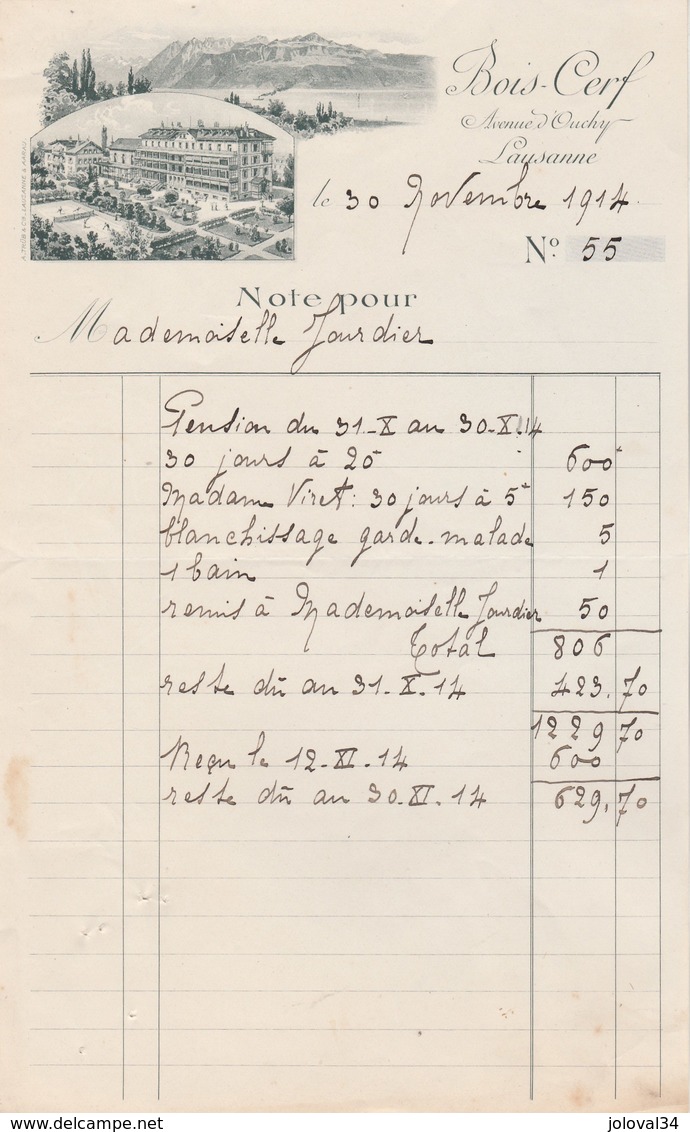 Bois-Cerf
Avenue d'Ouchy
Lausanne
A. TRÜB & CIE LAUSANNE & AARAU.
le 30 Novembre 1914
No. 55
Note pour
Mademoiselle Jourdier
Pension du 31-X au 30-XI.14
30 jours à 20 600
Madame Viret: 30 jours à 5 150
blanchissage garde-malade 5
1 bain 1
remis à Mademoiselle Jourdier 50
Total 806
reste dû au 31.X.14 423.70
1229 70
Reçu le 12-XI.14 600
reste dû au 30.XI.14 629.70
joloval34